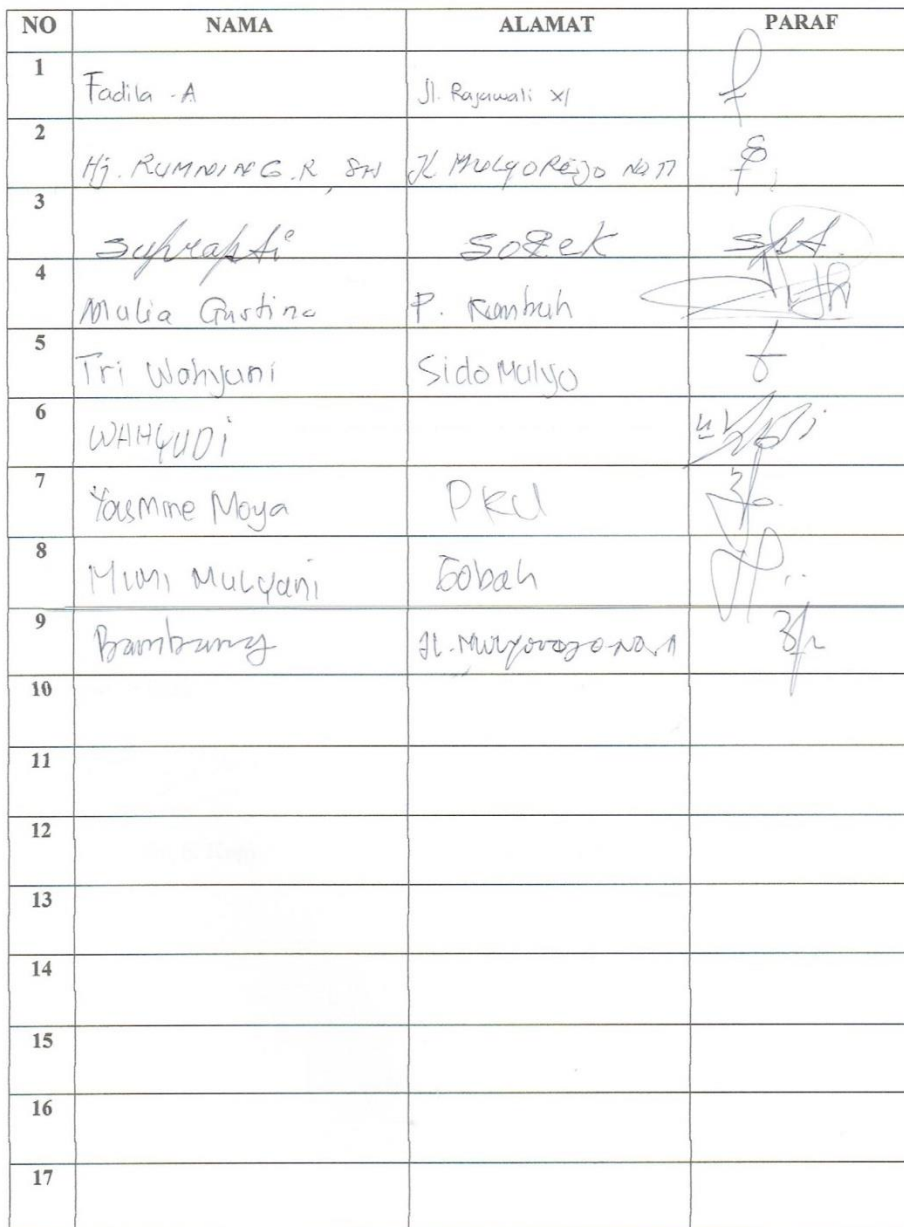 NO NAMA ALAMAT PARAF
1 Fadila . A Jl. Rajawali XI
2 Hj. RUMNING . R, SH Jl MULYOREJO No 11
3 Suprapti SOBEK
4 Mulia Gustina P. Kambuh
5 Tri Wahyuni Sidomulyo
6 WAHYUDi
7 Yasmine Moya PKU
8 Mimi Mulyani Gobah
9 Bambang Jl. Mulyorejo No. 11
10
11
12
13
14
15
16
17